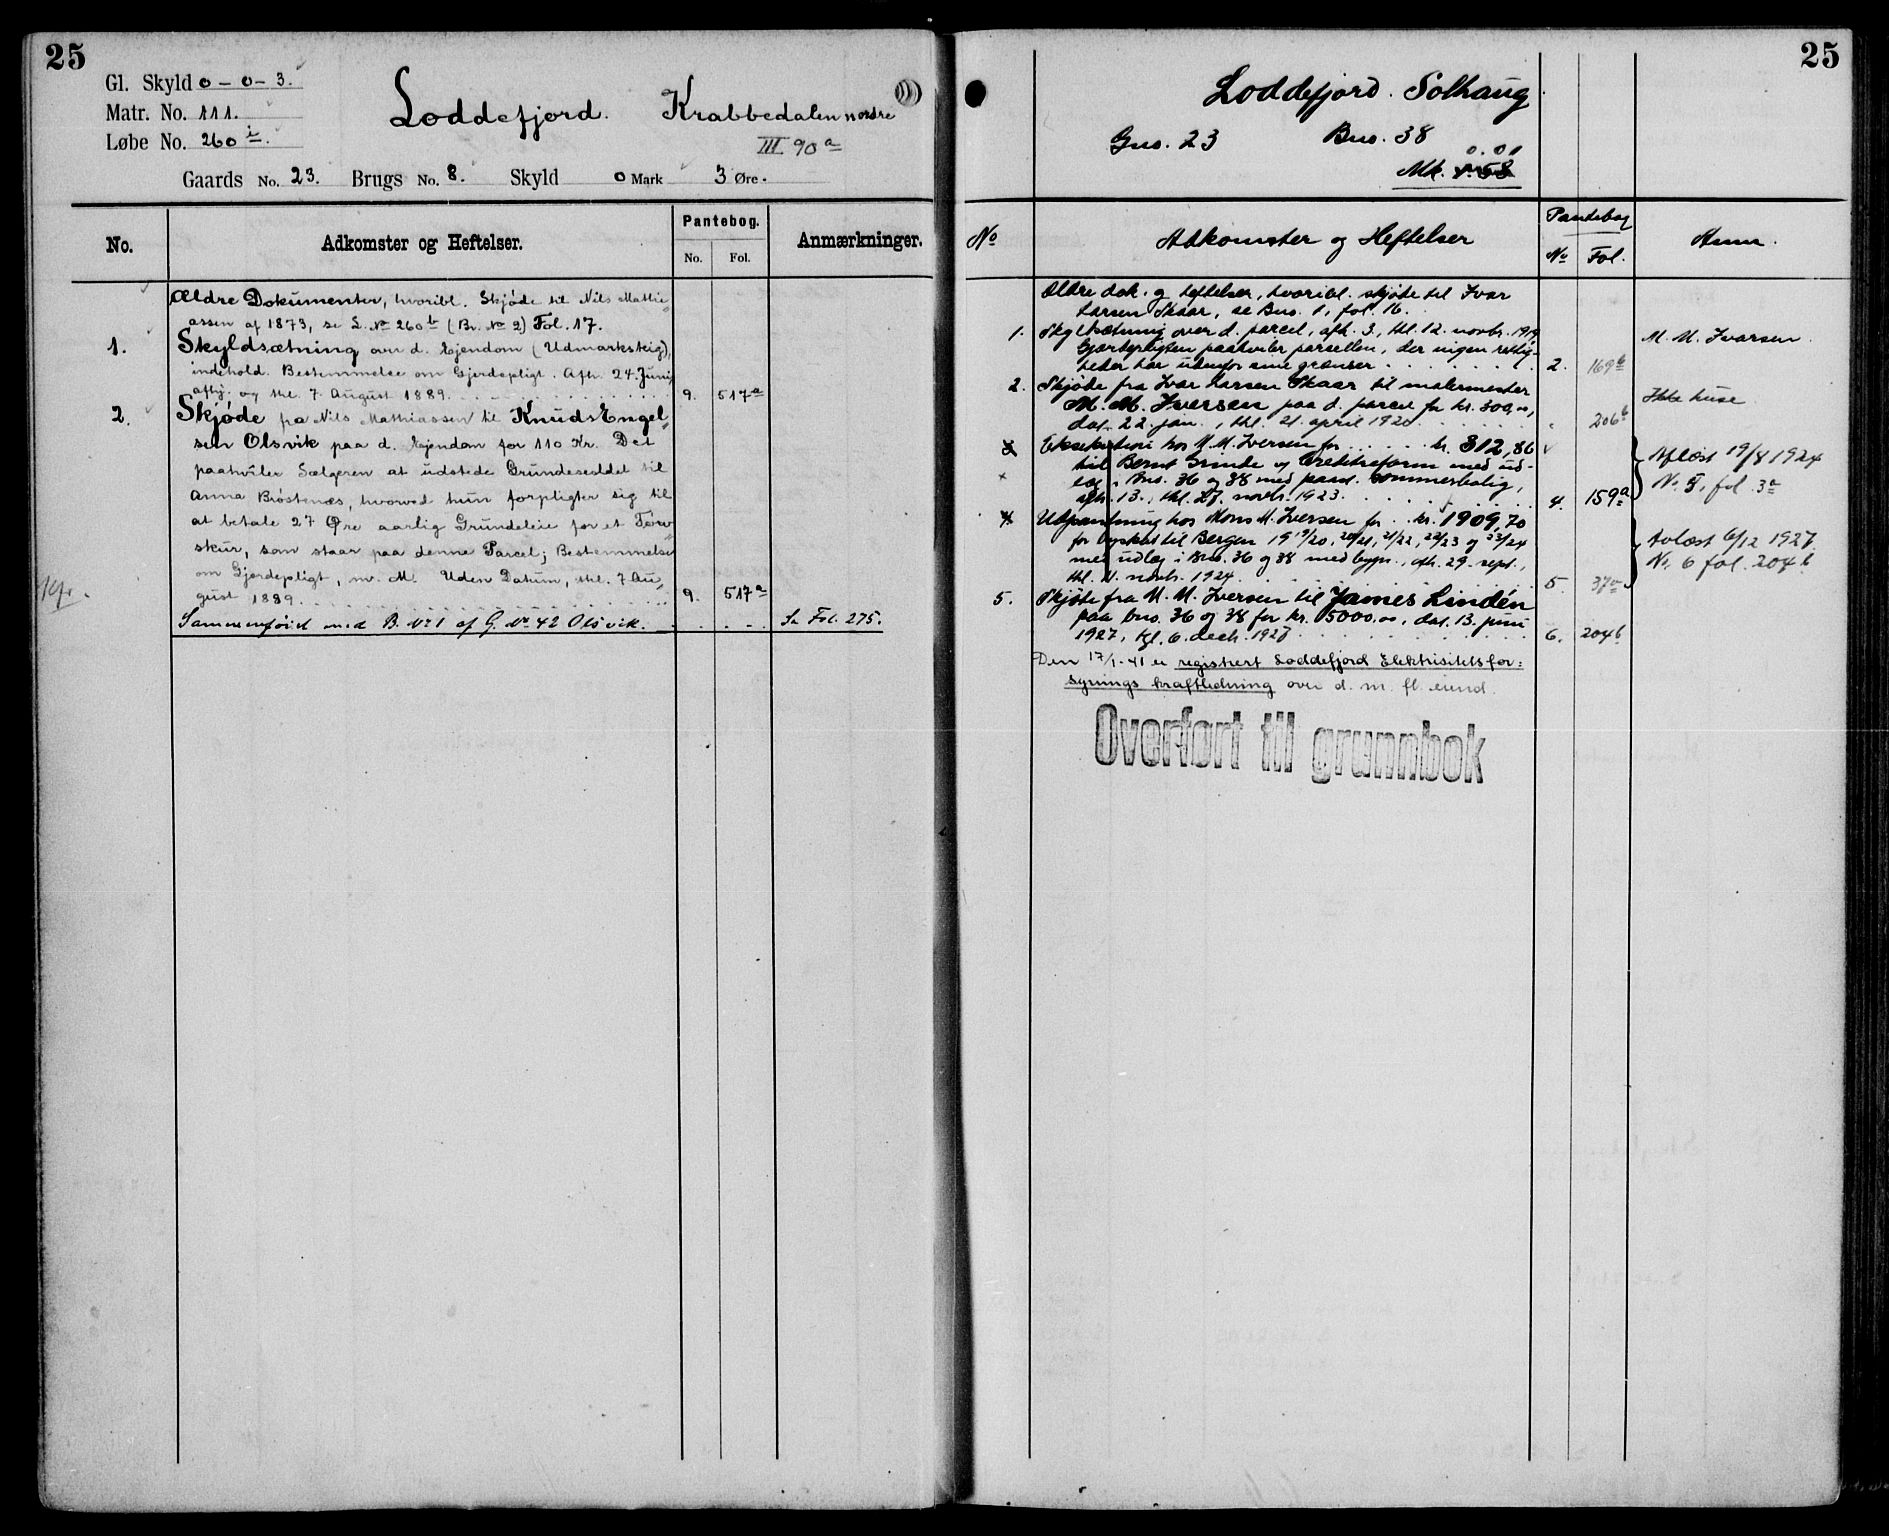 25
Gl. Skyld 0 - 0 - 3.
Matr. No. 111.
Løbe No. 260 i.
Loddefjord. Krabbedalen nordre
III 90 a
Gaards No. 23. Brugs No. 8. Skyld 0 Mark 3 Øre.
No.
Adkomster og Heftelser.
Pantebog.
No. Fol.
Anmærkninger.
Ældre Dokumenter, hvoribl. Skjøde til Nils Mathi
assen af 1873, se L. No 260 b (Br. No 2) Fol. 17.
1. Skyldsætning over d. Ejendom (Udmarksteig),
indehold. Bestemmelse om Gjerdepligt. Afh. 24. Juni,
afhj. og thl. 7 August 1889. 9. 517 a
2. Skjøde fra Nils Mathiassen til Knuds Engel
sen Olsvik paa d. Ejendom for 110 Kr. Det
paahviler Sælgeren at udstede Grundeseddel til
Anna Brøstenæs, hvorved hun forpligter sig til
at betale 27 Øre aarlig Grundeleie for et Torv
skur, som staar paa denne Parcel; Bestemmelse
om Gjerdepligt, m. M. Uden Datum, thl. 7 Au
gust 1889. 9. 517 a
Kfr.
Sammenføiet med B. No 1 af G. No 42 Olsvik. Se Fol. 275.
25
Loddefjord. Solhaug
Gno. 23 Bno. 38
0.01
Mk.
No
Adkomster og Heftelser
Pantebog
No Fol.
Anm.
Ældre dok. og heftelser, hvoribl. skjøte til Ivar
Larsen Skaar, se Bno. 1, fol. 16.
1. Skyldsætning over d. parcel, afh. 3, thl. 12. novbr. 1919
Gjærdepligten paahviler parsellen, der ingen rettig-
heter har utenfor sine grænser 2. 169 b
M. M. Ivarsen.
2. Skjøte fra Ivar Larsen Skaar til malermester
M. M. Iversen paa d. parcel for kr. 300,00,
dat. 22. jan., thl. 21. april 1920 " 206 b
Ikke huse
3 Eksekution hos M. M. Iversen for kr. 312,86
til Bernt Grinde og Creditreform med ud-
læg i Bno. 36 og 38 med paast. sommerbolig,
afh. 13., thl. 27. novbr. 1923. 4. 159 a
Aflæst 19/8 1924
No. 5, fol. 3 a
4 Utpantning hos Mons M. Iversen for kr. 1909,70
for byskat til Bergen 19 19/20, 20/21, 21/22, 22/23 og 23/24
med utlæg i Bno. 36 og 38 med bygn., afh. 29. sept.,
thl. 11. novbr. 1924. 5. 37 a
Avlæst 6/12 1927
No. 6 fol. 204 b
5. Skjøte fra M. M. Iversen til James Lindén
paa bno. 36 og 38 for kr. 15000,00, dat. 13. juni
1927, tgl. 6. decb. 1927 6. 204 b
Den 17/1-41 er registrert Loddefjord Elektrisitetsfor=
synings kraftledning over d. m. fl. eiend.
Overført til grunnbok